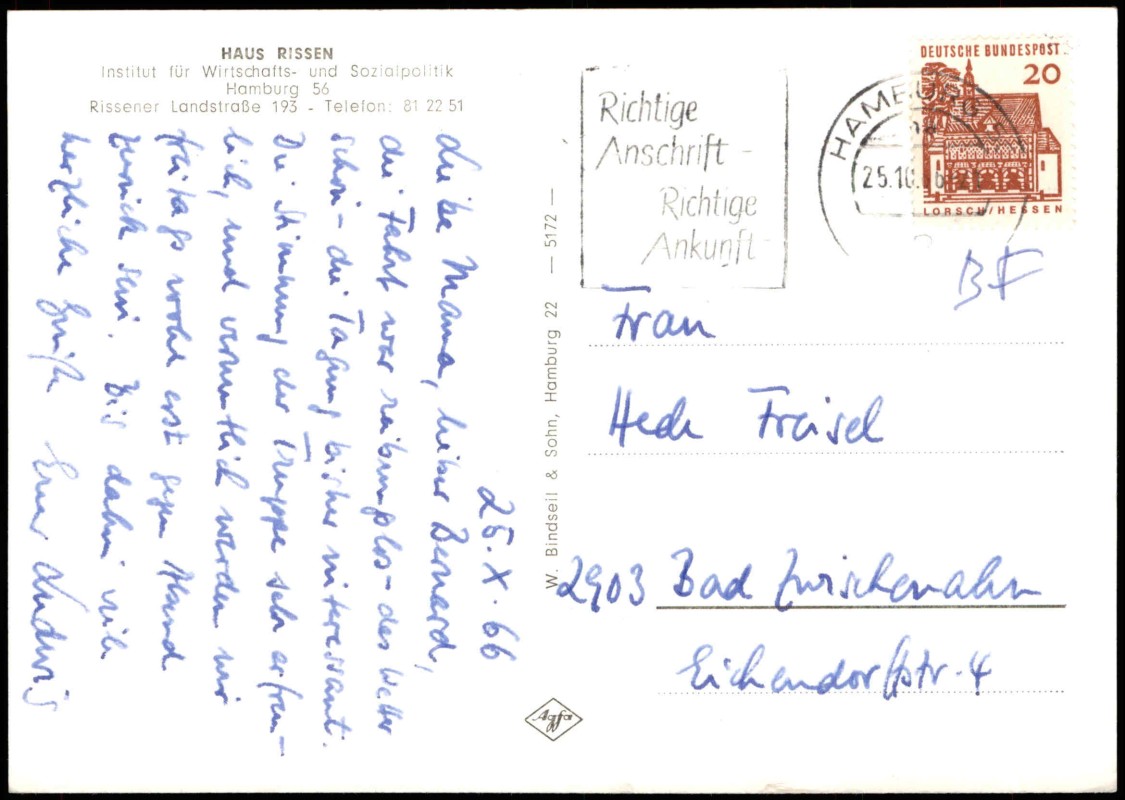 HAUS RISSEN
Institut für Wirtschafts- und Sozialpolitik
Hamburg 56
Rissener Landstraße 193 - Telefon: 81 22 51
25.X.66
Liebe Mama, lieber Bernard,
die Fahrt war reibungslos - das Wetter
schön - die Tagung bisher interessant.
Die Stimmung der Truppe sehr erfreu-
lich, und vermutlich werden wir
freitags wohl erst gegen Abend
zurück sein. Bis dahin viele
herzliche Grüße Euer Ludwig
W. Bindseil & Sohn, Hamburg 22 — 5172 —
Agfa
Richtige
Anschrift -
Richtige
Ankunft
HAMBURG
25.10.
DEUTSCHE BUNDESPOST
20
LORSCH/HESSEN
BF
Frau
Hede Freisel
2903 Bad Zwischenahn
Eichendorffstr. 4